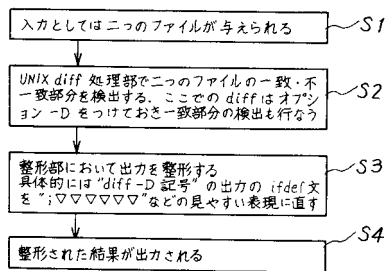 入力としては二つのファイルが与えられる
S1
UNIX diff 処理部で二つのファイルの一致・不
一致部分を検出する、ここでの diff はオプシ
ョン －D をつけておき一致部分の検出も行なう
S2
整形部において出力を整形する
具体的には“diff －D 記号”の出力の ifdef文
を“;▽▽▽▽▽▽”などの見やすい表現に直す
S3
整形された結果が出力される
S4